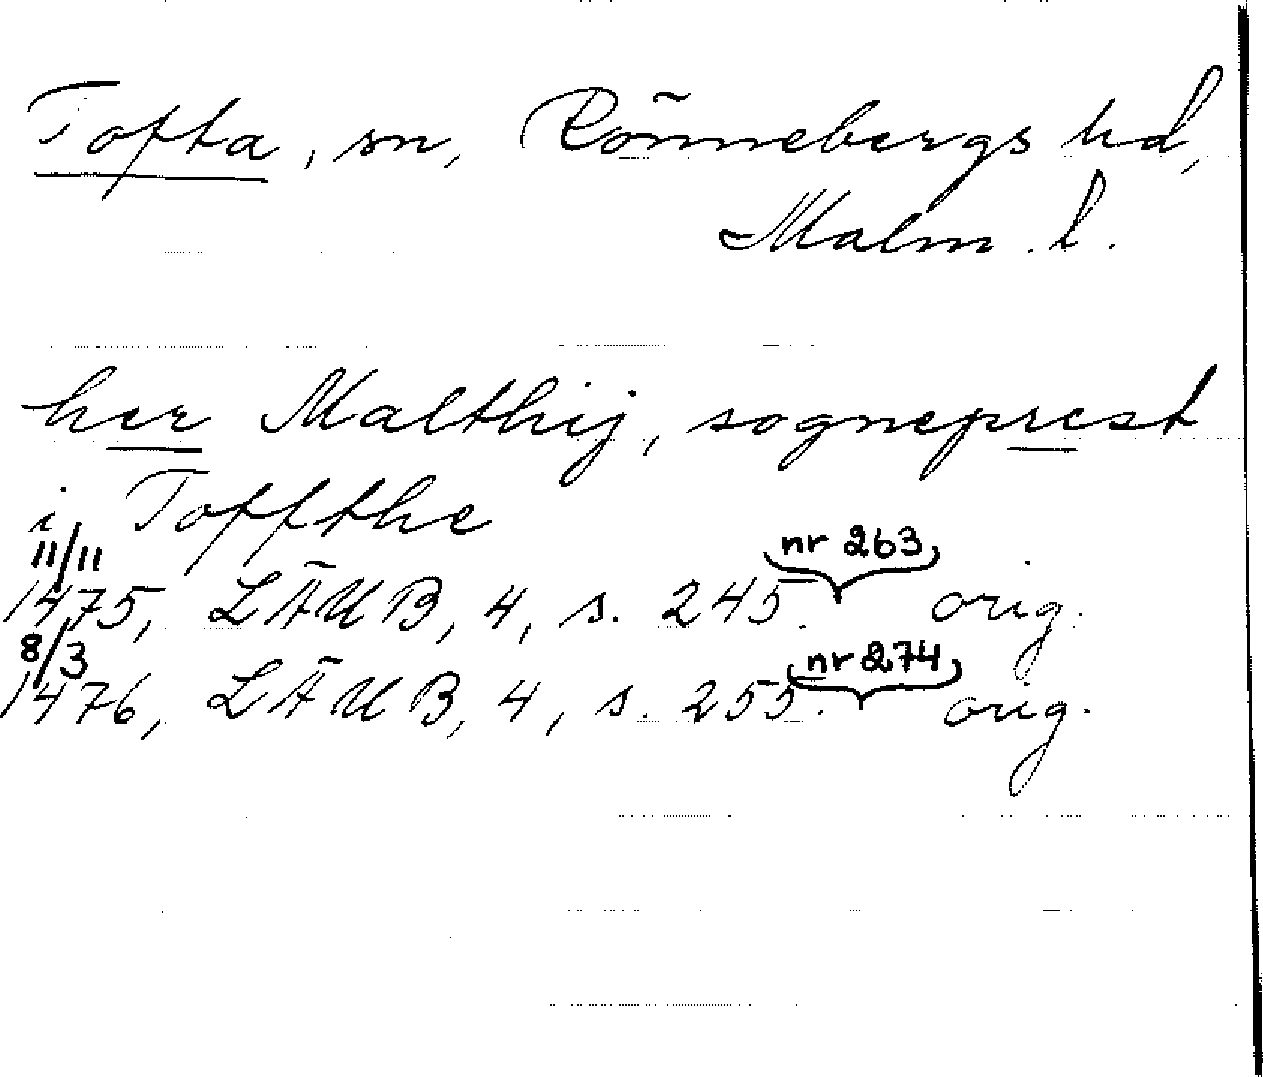 Tofta, sn, Rönnebergs hd,
Malm. l.
her Malthij, sogneprest
i Toffthe
11/11
nr 263
1475, LÄUB, 4, s. 245. orig.
8/3
nr 274
1476, LÄUB, 4, s. 255. orig.